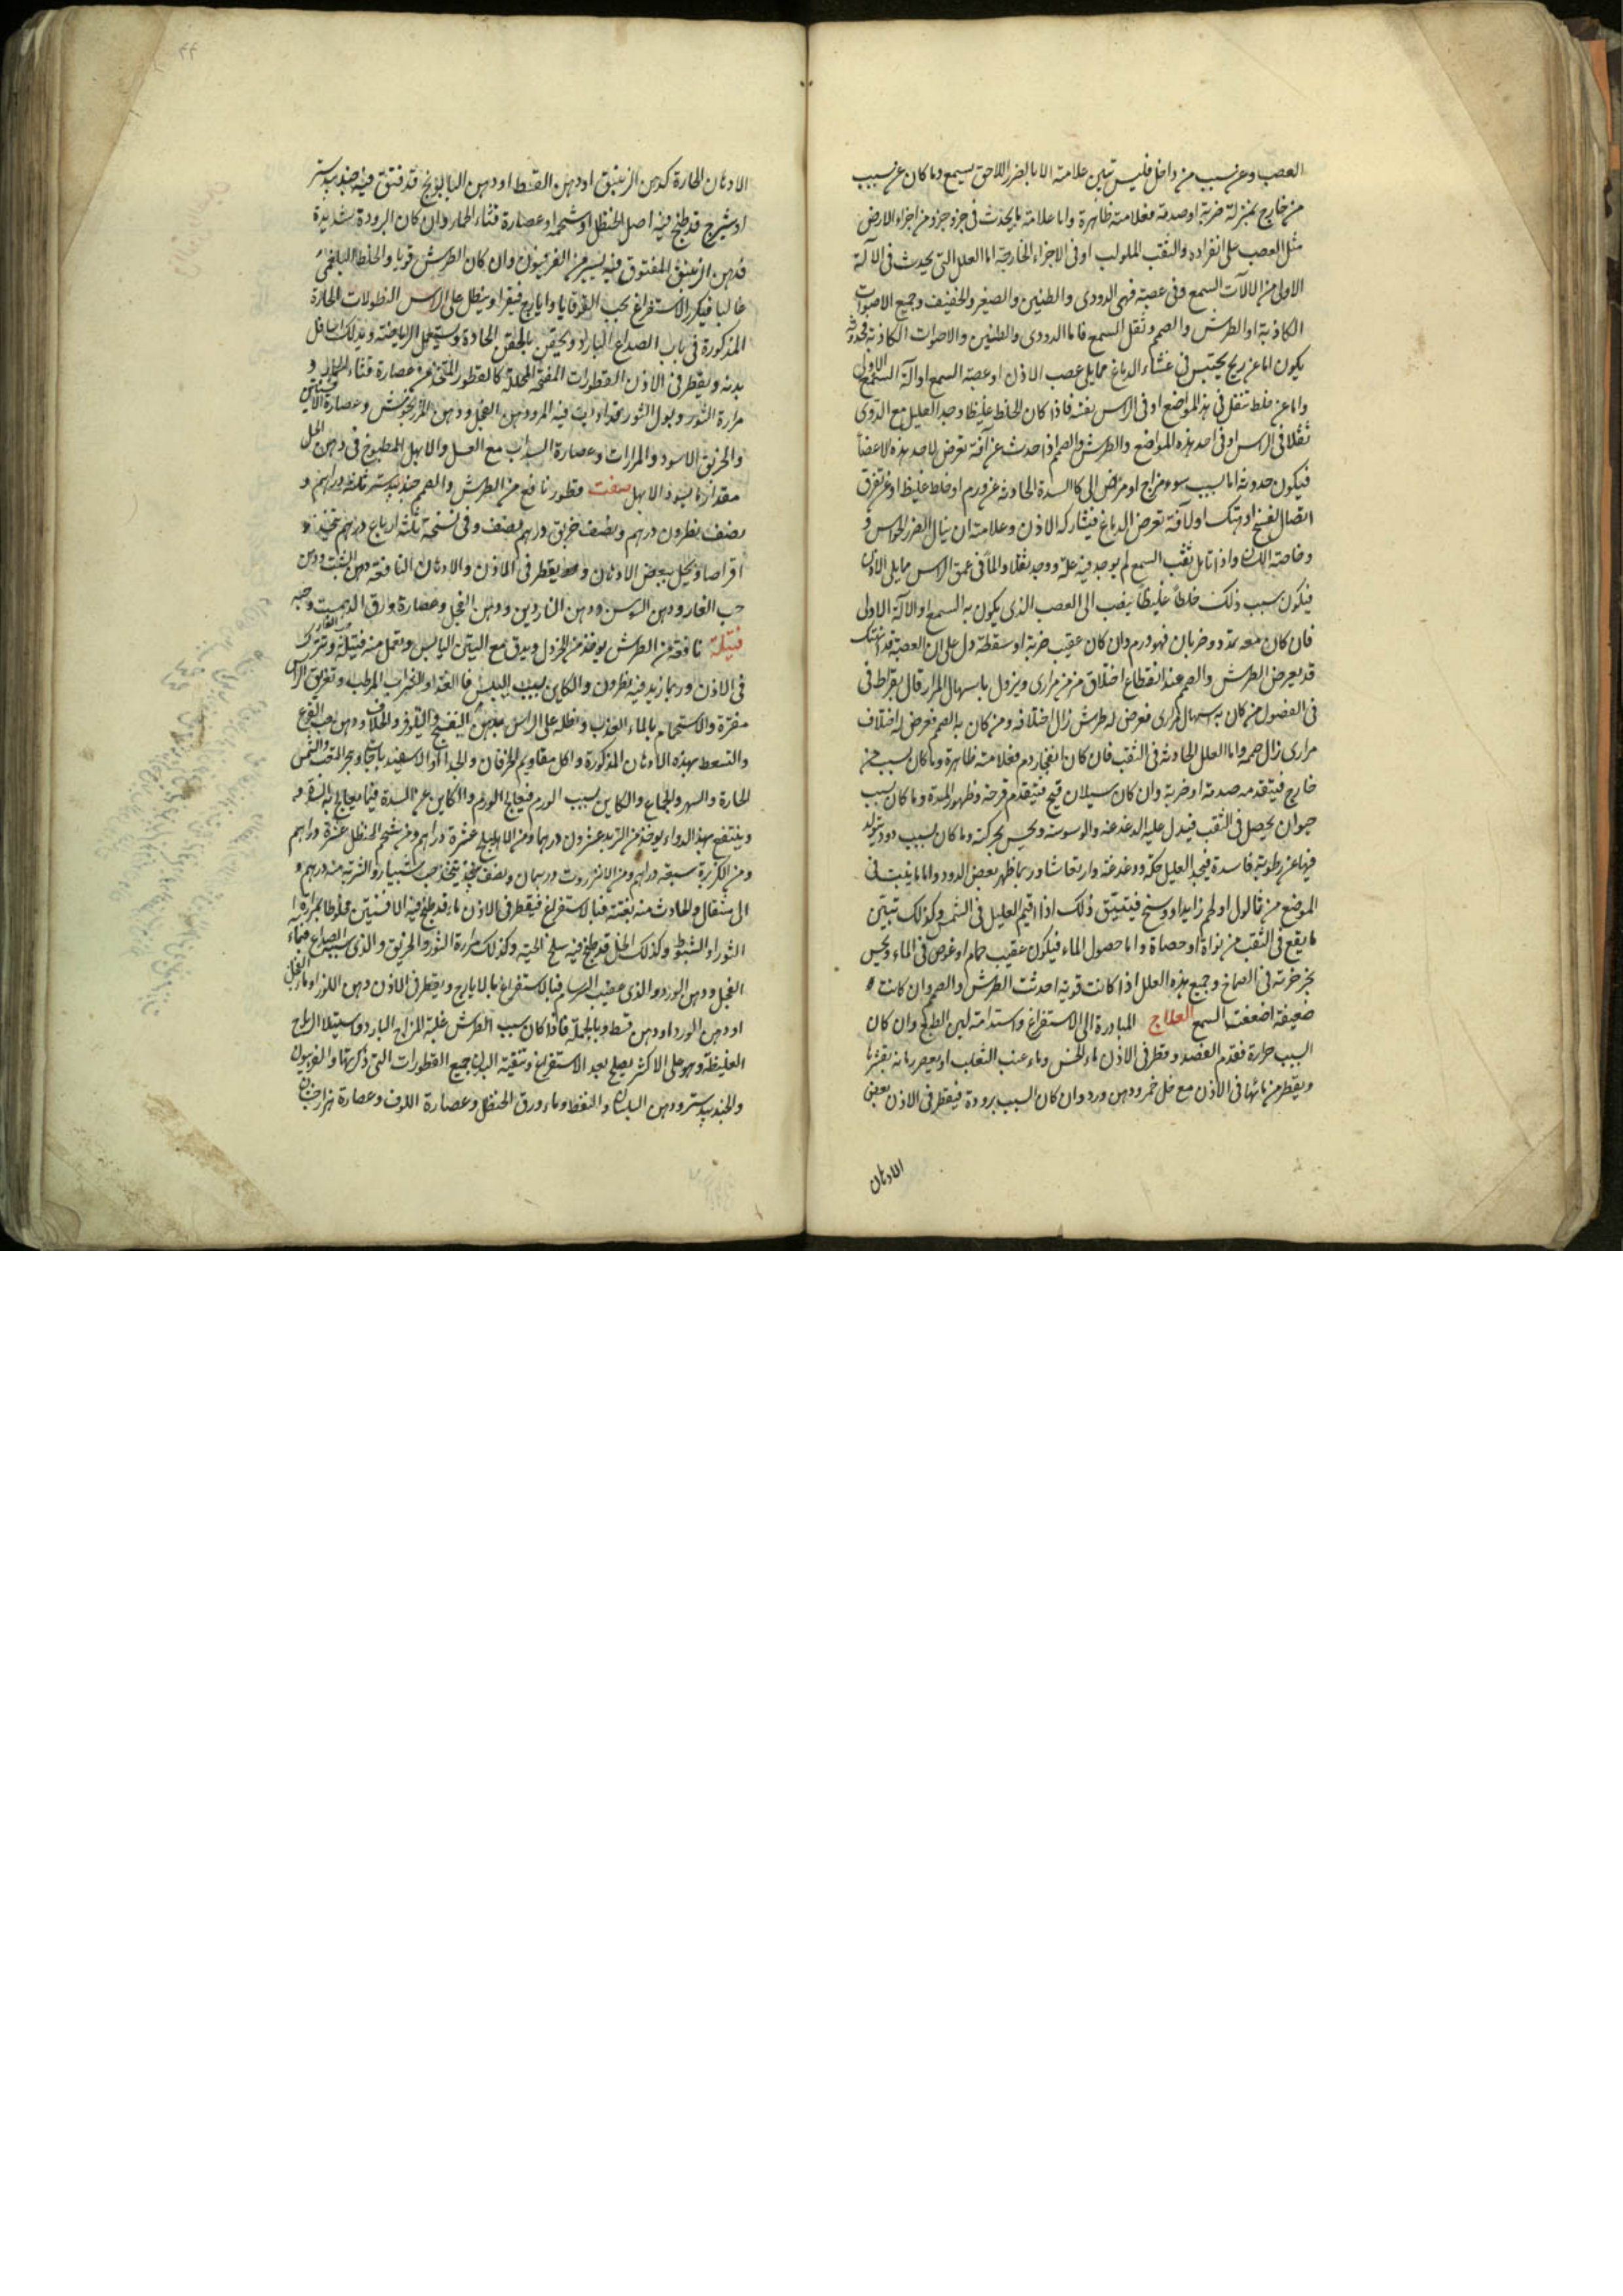 العصب وعن سبب من داخل فليس تبين علامته الا بالضرر اللاحق بسمع وما كان عن سبب
من خارج بمنزلة ضربة او صدمة فعلامته ظاهرة واما علامة ما يحدث فى جزو جزو من اجزاء الارض
مثل العصب على انفراده والثقب الملولب او فى الاجزاء الخارجة اما العلل التى يحدث فى الآلة
الاولى من آلات السمع وفى عصبته فهى الدودى والطنين والصفير والحفيف وجميع الاصوات
الكاذبة او الطرش والصمم وثقل السمع فاما الدودى والطنين والاصوات الكاذبة فحدوثه
يكون اما عن ريح يحتبس فى غشاء الدماغ مما يلى عصب الاذن او عصبة السمع او آلة السمع الاولى
واما عن خلط ثقل فى هذه المواضع او فى الراس نفسه فاذا كان الخلط غليظا وجد العليل مع الدوى
ثقلا فى الراس او فى احد هذه المواضع والطرش والصمم اذا حدث عن آفة تعرض لاحد هذه الاعضا
فيكون حدوثه اما بسبب سوء مزاج او مرض الى كالسدة الحادثة عن ورم او خلط غليظ او عن تفرق
اتصال لفسخ او هتك او لآفة تعرض الدماغ فيشاركه الاذن وعلامته ان ينال الضرر الحواس و
وخاصة اللسان واذا تامل ثقب السمع لم يوجد فيه علة ووجد ثقلا والما فى عمق الراس مما يلى الاذن
فيكون سبب ذلك خلطا غليظا ينصب الى العصب الذى يكون به السمع او الآلة الاولى
فان كان معه تمدد وضربان فهو ورم وان كان عقيب ضربة او سقطة دل على ان العصبة قد انهتك
قد يعرض الطرش والصمم عند انقطاع اختلاف مزمن مرارى ويزول باسهال المرار قال بقراط فى
فى الفصول من كان به اسهال مرارى فعرض له طرش زال اختلافه ومن كان به الصمم فعرض له اختلاف
مرارى زال صممه واما العلل الحادثة فى الثقب فان كان انفجار دم فعلامته ظاهرة وما كان بسبب من
خارج فيتقدمه صدمة او ضربة وان كان سيلان قيح فيتقدم قرحة وظهور المدة وما كان بسبب
حيوان يحصل فى الثقب فيدل عليه الدغدغة والوسوسة ويحس بحركته وما كان بسبب دود يتولد
فيها عن رطوبة فاسدة فيجد العليل حكة ودغدغة وارتعاشا وربما ظهر بعض الدود واما ما ينبت فى
الموضع من ثالول او لحم زايد او وسخ فيتبين ذلك اذا اقيم العليل فى الشمس وكذلك تبين
ما يقع فى الثقب من نواة او حصاة واما حصول الماء فيكون عقيب حمام او غوص فى الماء ويحس
بخرخرة فى الصماخ وجميع هذه العلل اذا كانت قوية احدثت الطرش والصمم وان كانت
ضعيفة اضعفت السمع العلاج المبادرة الى الاستفراغ واستدامة لين الطبع وان كان
السبب حرارة فقدم الفصد وقطر فى الاذن ماء الخس وماء عنب الثعلب او يعصر رمانة بقشرها
ويقطر من مائها فى الاذن مع خل خمر ودهن ورد وان كان السبب برودة فيقطر فى الاذن بعض
الادهان
الادهان الحارة كدهن الزنبق او دهن القسط او دهن البابونج قد فتق فيه جندبيدستر
او شيرج قد طبخ فيه اصل الحنظل او شحمه او عصارة قثاء الحمار وان كان البرودة شديدة
فدهن الزنبق المفتوق فيه يسير من الفربيون وان كان الطرش قويا والخلط البلغمى
غالبا فيكرر الاستفراغ بحب القوقايا وايارج فيقرا وينطل على الراس النطولات الحارة
المذكورة فى باب الصداع البارد ويحقن بالحقن الحادة ويستعمل الرياضة ويدلك اسافل
بدنه ويقطر فى الاذن القطورات المفتحة المحللة كالقطور المتخذ من عصارة قثاء الحمار و
مرارة الثور وبول الثور قد اديف فيه المر ودهن الفجل ودهن المرزنجوش وعصارة الافسنتين
والخربق الاسود والمرارات وعصارة السذاب مع العسل والابهل المطبوخ فى دهن الحل
مقدار ما يسود الابهل صفت قطور نافع من الطرش والصمم جندبيدستر ثلثة دراهم و
نصف نطرون درهم ونصف خربق درهم ونصف وفى نسخة ثلثة ارباع درهم يتخذ
اقراصا ويحل ببعض الادهان ويقطر فى الاذن والادهان النافعة دهن الشبت ودهن
حب الغار ودهن السوسن ودهن الناردين ودهن الفجل وعصارة ورق الدهمست وحبه
حب الغار
فتيلة نافعة من الطرش يوخذ من الخردل ويدق مع التين اليابس ويعمل منه فتيلة ويترك
فى الاذن وربما زيد فيه نطرون والكاين بسبب اليبس فالغذاو الشراب المرطب وتغريق الراس
مفترة والاستحمام بالماء العذب ونطله على الراس بدهن البنفسج والنيلوفر والخلاف ودهن حب القرع
والتسعط بهذه الادهان المذكورة واكل مقاديم الخرفان والجدا او الاسفيد باجات وهجر التعب والشمس
الحارة والسهر والجماع والكاين بسبب الورم فيعالج الورم والكاين عن السدة فيما يعالج به السدة
وينتفع بهذا الدواء يوخذ من التربد عشرون درهما ومن الاهليلج عشرة دراهم ومن شحم الحنظل عشرة دراهم
ومن الكزبرة سبعة دراهم ومن الانزروت درهمان ونصف يتخذ حب شبيار والشربة منه درهم و
الى مثقال والحادث منه بغتة فبالاستفراغ فيقطر فى الاذن ماء قد طبخ فيه الافسنتين مخلوطا بمرارة
الثور او الشبوط وكذلك الخل قد طبخ فيه سلخ الحية وكذلك مرارة الثور والخربق والذى سببه الصداع فبماء
الفجل ودهن الورد والذى عقيب السرسام فبالاستفراغ بالايارج ويقطر فى الاذن دهن اللوز او ماء الفجل
او دهن الورد او دهن قسط وبالجملة فاذا كان سبب الطرش غلبة المزاج البارد واستيلا الرياح
الغليظة وهو على الاكثر يصلح بعد الاستفراغ وتنقية البدن جميع القطورات التى ذكرتها والفربيون
والجندبيدستر ودهن البلسان والنفط وماء ورق الحنظل وعصارة اللوف وعصارة